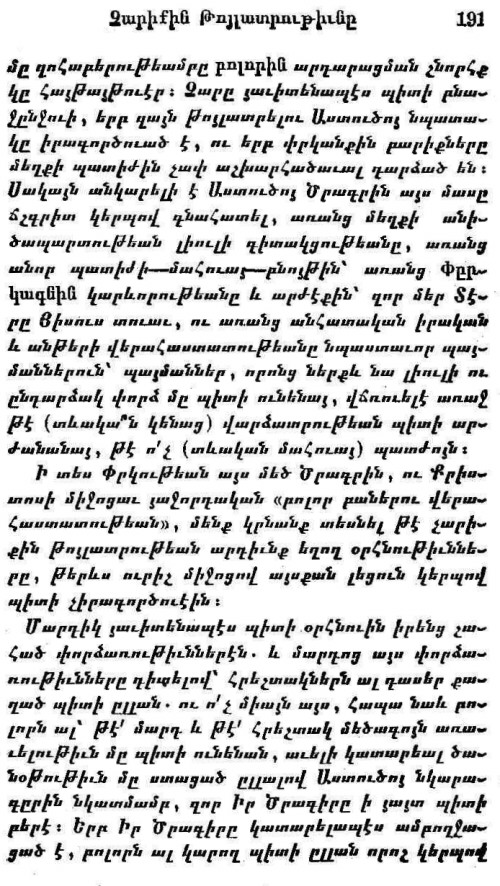 Չարիքին Թոյլատրութիւնը 191
մը զոհաբերութեամրը բոլորին արդարացման շնորհք
կը հայթայթուէր։ Չարը յաւիտենապէս պիտի բնա–
ջընջուի, երբ զայն թոյլատրելու Աստուծոյ նպատա–
կը իրագործուած է, ու երբ փրկանքին բարիքները
մեղքի պատիժին չափ աշխարհածաւալ դարձած են։
Սակայն անկարելի է Աստուծոյ Ծրագրին այս մասը
ճշգրիտ կերպով գնահատել, առանց մեղքի անի–
ծապարտութեան լիուլի գիտակցութեանը, առանց
անոր պատիժի—մահուայ—բնոյթին՝ առանց Փըր–
կագնին կարևորութեանը և արժէքին՝ զոր մեր Տէ–
րը Յիսուս տուաւ, ու առանց անհատական իրական
և անթերի վերահաստատութեանը նպաստաւոր պայ–
մաններուն՝ պայմաններ, որոնց ներքև նա լիուլի ու
ընդարձակ փորձ մը պիտի ունենայ, վճռուելէ առաջ
թէ (տևակա՞ն կենաց) վարձատրութեան պիտի ար–
ժանանայ, թէ ո՛չ (տևական մահուայ) պատժոյն։
Ի տես Փրկութեան այս մեծ Ծրագրին, ու Քրիս–
տոսի միջոցաւ յաջորդական «բոլոր բաներու վերա–
հաստատութեան», մենք կրնանք տեսնել թէ չարի–
քին թոյլատրութեան արդիւնք եղող օրհնութիւննե–
րը, թերևս ուրիշ միջոցով այսքան լեցուն կերպով
պիտի չիրագործուէին։
Մարդիկ յաւիտենապէս պիտի օրհնուին իրենց շա–
հած փորձառութիւններէն. և մարդոց այս փորձա–
ռութիւնները դիտելով՝ Հրեշտակներն ալ դասեր քա–
ղած պիտի ըլլան. ու ո՛չ միայն այս, հապա նաև բո–
լորն ալ՝ թէ՛ մարդ և թէ՛ Հրեշտակ մեծագոյն առա–
ւելութիւն մը պիտի ունենան, աւելի կատարեալ ծա–
նօթութիւն մը ստացած ըլլալով Աստուծոյ նկարա–
գըրին նկատմամբ, զոր Իր Ծրագիրը ի յայտ պիտի
բերէ։ Երբ Իր Ծրագիրը կատարելապէս ամբողջա–
ցած է, բոլորն ալ կարող պիտի ըլլան որոշ կերպով